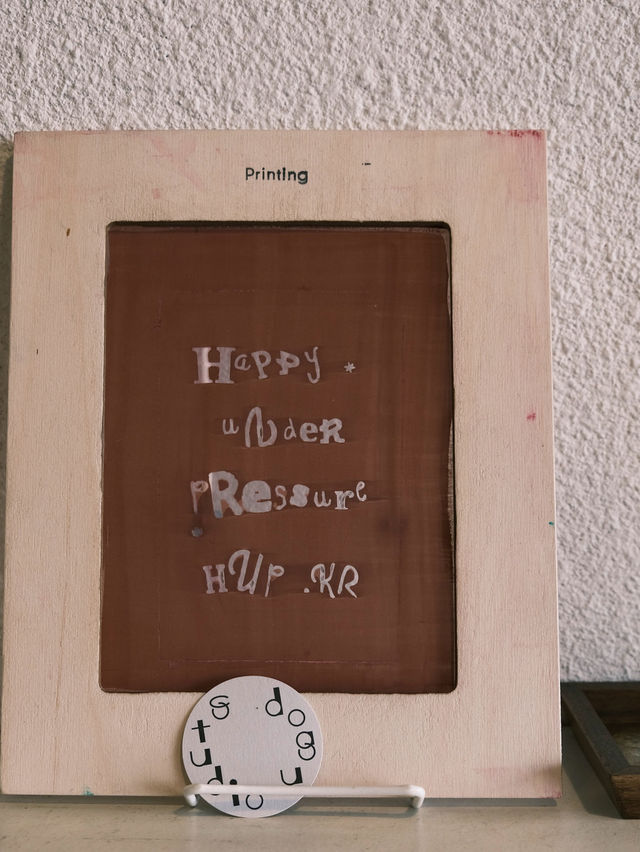 Printing
Happy *
uNdeR
pRessure
HUP .KR
dogu
studio